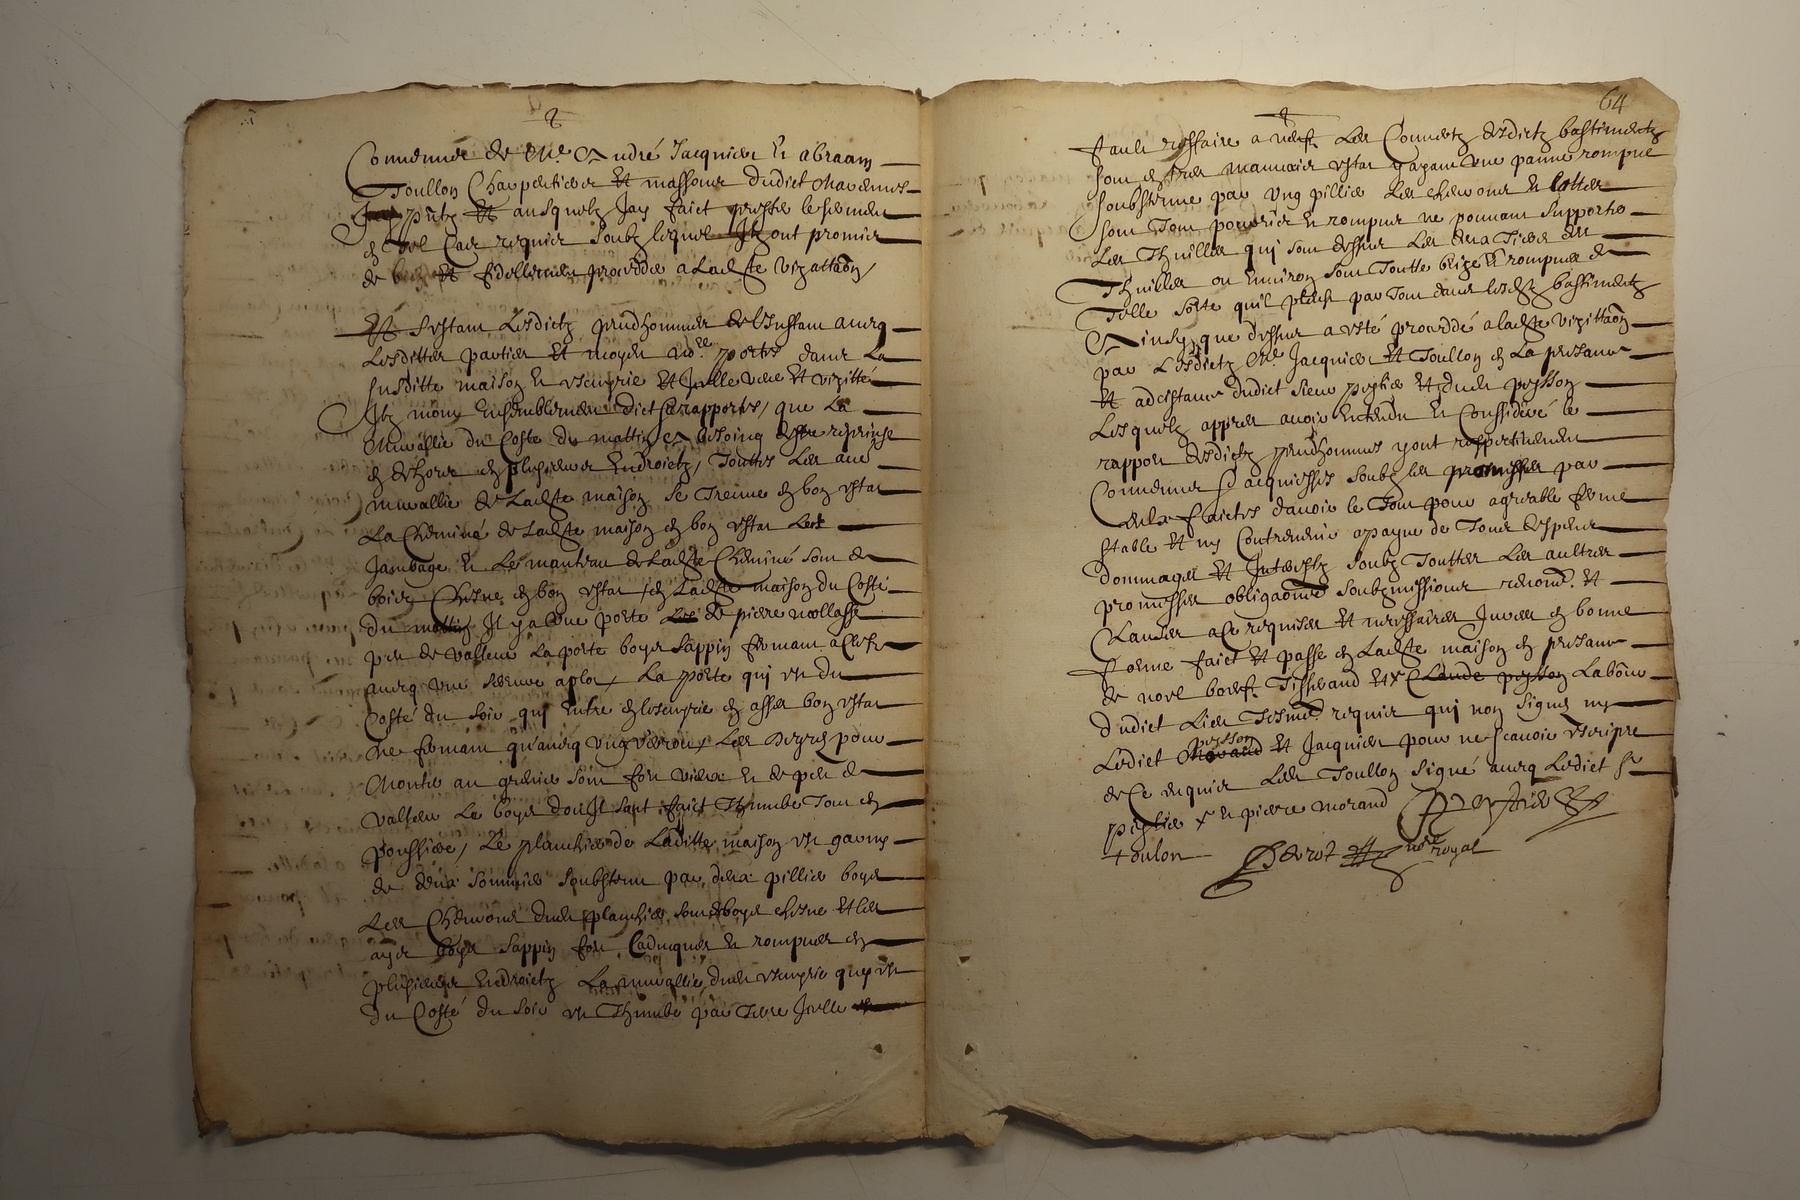 Convenus de Me André Jacquier et abraam
Toullon Charpentier et massons dudict
pñtz et ausquelz Jay faict prester le serment
en tel Cas requier soubz lequel Ilz ont promier
de bien et fidellement procedder a ladte vizattaõn /
Et Estant Lesdictz prudhommes de linstant avecq
Lesdittes parties et moyd nore portes dans La
susditte maison et escuyrie et Icelle veue et vizitté
Ilz mont ensemblement dict et rapportes / que La
muraillie du Coste du mattin a besoing destre reprinse
en dehors en plusieurs endroictz / Touttes Les aues
muraillie de Ladte maison se Treuve en bon estat
La Cheminé de Ladte maison en bon estat Les
Jambage et Le manteau de Ladte Cheminé sont de
bois Chesne en bon estat / en Ladte maison du Costé
du mattin Il y a une porte de pierre mollasse
pres de La porte boys sappin fermant a Clefz
avecq une serrure / La porte qui est du
Costé du soir qui entre en lescuyrie en asses bon estat
ne fermant quavecq ung verrou / Les degres pour
Monter au grenier sont fort vieux et de pier de
Le boys dont Il sont faict Thumbe Tout en
poussiere / Le planchier de Laditte maison est garny
de deux sommier soubstenu par deux pillier boys
Les Chevrons dudt planchier sont boys chesne et les
ays boys sappin fort Caducques et rompues en
plusieurs endroictz La muraillie dudt escuyrie quy est
du Costé du soir est Thumbé par Terre Icelle
64
fault reffaire a neufz Les Couvertz desdictz bastimentz
sont en tres mauvais estat y ayant une panne rompue
soubstenue par ung pillier Les chevrons et lattes
sont Tout pourrier et rompus ne pouvant supporter
Les Thuilles qui sont dessus Les deux Tiers des
Thuilles ou environ sont Touttes brizé et rompues de
Telle sorte quil pleust par Tout dans lesdtz bastimentz
Ainsy que dessus a esté proceddé a ladte vizittaõn
par Lesdictz Me Jacquier et Toullon en La presance
et adcistance dudict sieur pestier et dudt peysson
Lesquelz appres avoir entendu et Considéré le
rapport desdictz prudhommes y ont respectivement
Convenus et acquiesses soubz les promesses par
eulx faictes davoir le Tout pour agreable ferme
stable et ny Contrevenir a payne de Tous despens
dommages et Interestz soubz Touttes Les aultres
promesses obligaõns soubzmissions renons et
Clauses a ce requises et necessaires Juree en bonne
forme faict et passe en Ladte maison en presance
de noel boeuf Tisserand et x Claude peysson Labour
dudict Lieu Tesmoins requis qui non signes ny
Ledict peysson et Jacquier pour ne scavoir escripre
de Ce enquis Ledt Toullon signé avecq Ledict sr
pestier x et pierre morand
toulon nore royal